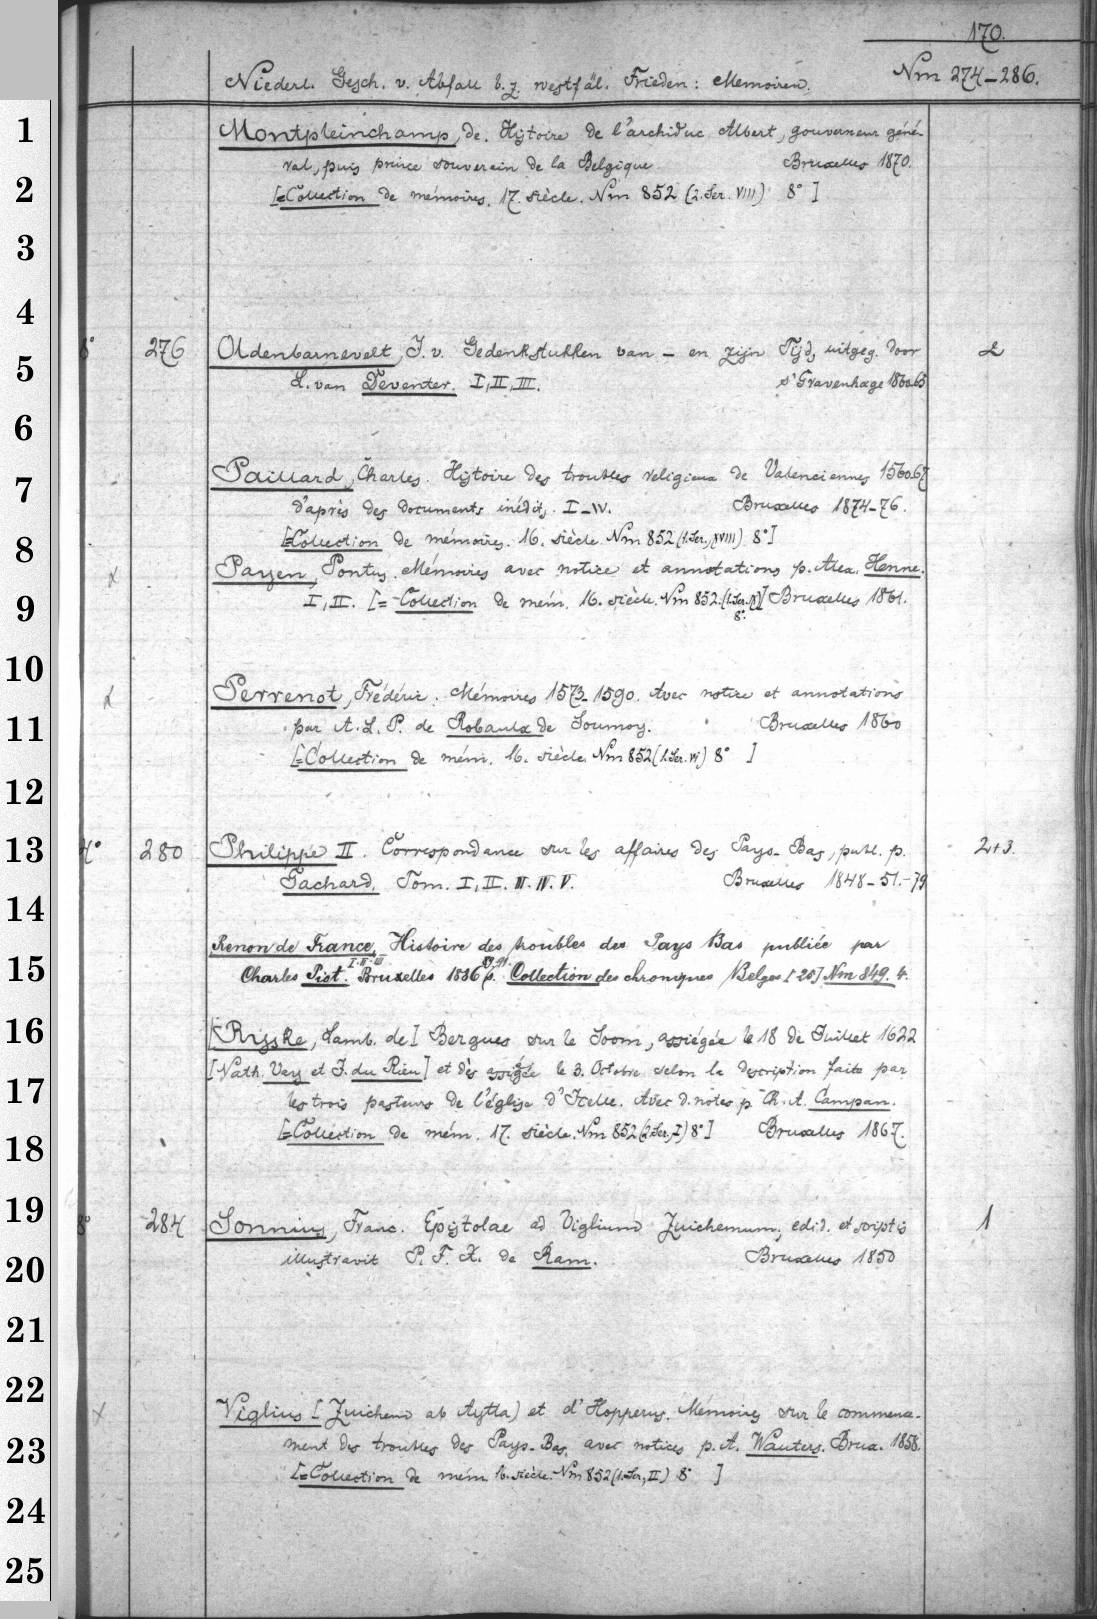 170.
Niederl. Gesch. v. Abfall b. z. westfäl. Frieden: Memoiren.
Nm 274-286.
1
Montpleinchamp, de. Histoire de l'archiduc Albert, gouverneur géné-
2
ral, puis prince souverain de la Belgique. Bruxelles 1870.
[=Collection de mémoires. 17. siècle. Nm 852 (2. Ser. VIII) 8° ]
3
4
5
8° 276 Oldenbarnevelt, J. v. Gedenkstukken van - en zijn Tijd, uitgeg. door 2
L. van Deventer. I, II, III. s'Gravenhage 1860.65
6
7
Paillard, Charles. Histoire des troubles religieux de Valenciennes 1560.67
d'après des documents inédits. I-IV. Bruxelles 1874-76.
8
[=Collection de mémoires. 16. siècle. Nm 852 (1. Ser., XVIII) 8°]
x Payen, Pontus. Mémoires avec notice et annotations p. Alex. Henne.
9
I, II. [= Collection de mém. 16. siècle. Nm 852. (1. Ser. ] Bruxelles 1861.
8°.
10
x Perrenot, Frédéric. Mémoires 1573-1590. Avec notice et annotations
11
par A. L. P. de Robaulx de Soumoy. Bruxelles 1860
[=Collection de mém. 16. siècle. Nm 852 (1. Ser. VI) 8° ]
12
13
4° 280 Philippe II. Correspondance sur les affaires des Pays-Bas, publ. p. 2+3.
Gachard. Tom. I, II. III. IV. V. Bruxelles 1848-51.-79
14
Renon de France, Histoire des troubles des Pays Bas publiée par
15
I. II. III
Charles Piot. Bruxelles 1886 Collection des chroniques Belges [ 28] Nm 849. 4.
16
[Rijske, Lamb. de] Bergues sur le Soom, assiégée le 18 de Juillet 1622
[Nath. Vay et J. du Rieu] et dès assigée le 3. Octobre selon la description faite par
17
les trois pasteurs de l'église d'Icelle. Avec d. notes p. Ch. A. Campan.
[=Collection de mém. 17. siècle. Nm 852 (2. Ser., I) 8°] Bruxelles 1867.
18
19
8° 284 Sonnius, Franc. Epistolae ad Viglium Zuichemum; edid. et scriptis 1
20
illustravit P. F. X. de Ram. Bruxelles 1850
21
22
x Viglius [Zuichem ab Aytta) et d'Hopperus. Mémoires sur le commence-
23
ment des troubles des Pays-Bas, avec notices p. A. Wauters. Brux. 1858.
[=Collection de mém. 16. siècle. Nm 852 (1. Ser., II) 8° ]
24
25